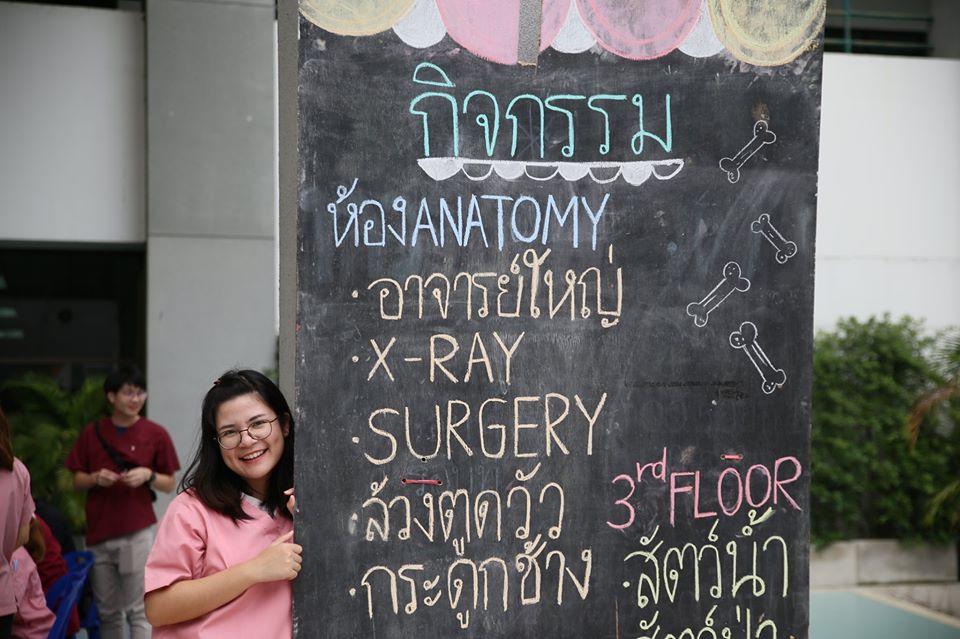 กิจกรรม
ห้องANATOMY
·อาจารย์ใหญ่
·X-RAY
·SURGERY
·ล้วงตูดวัว
·กระดูกช้าง
3rd FLOOR
·สัตว์น้ำ
สัตว์ป่า